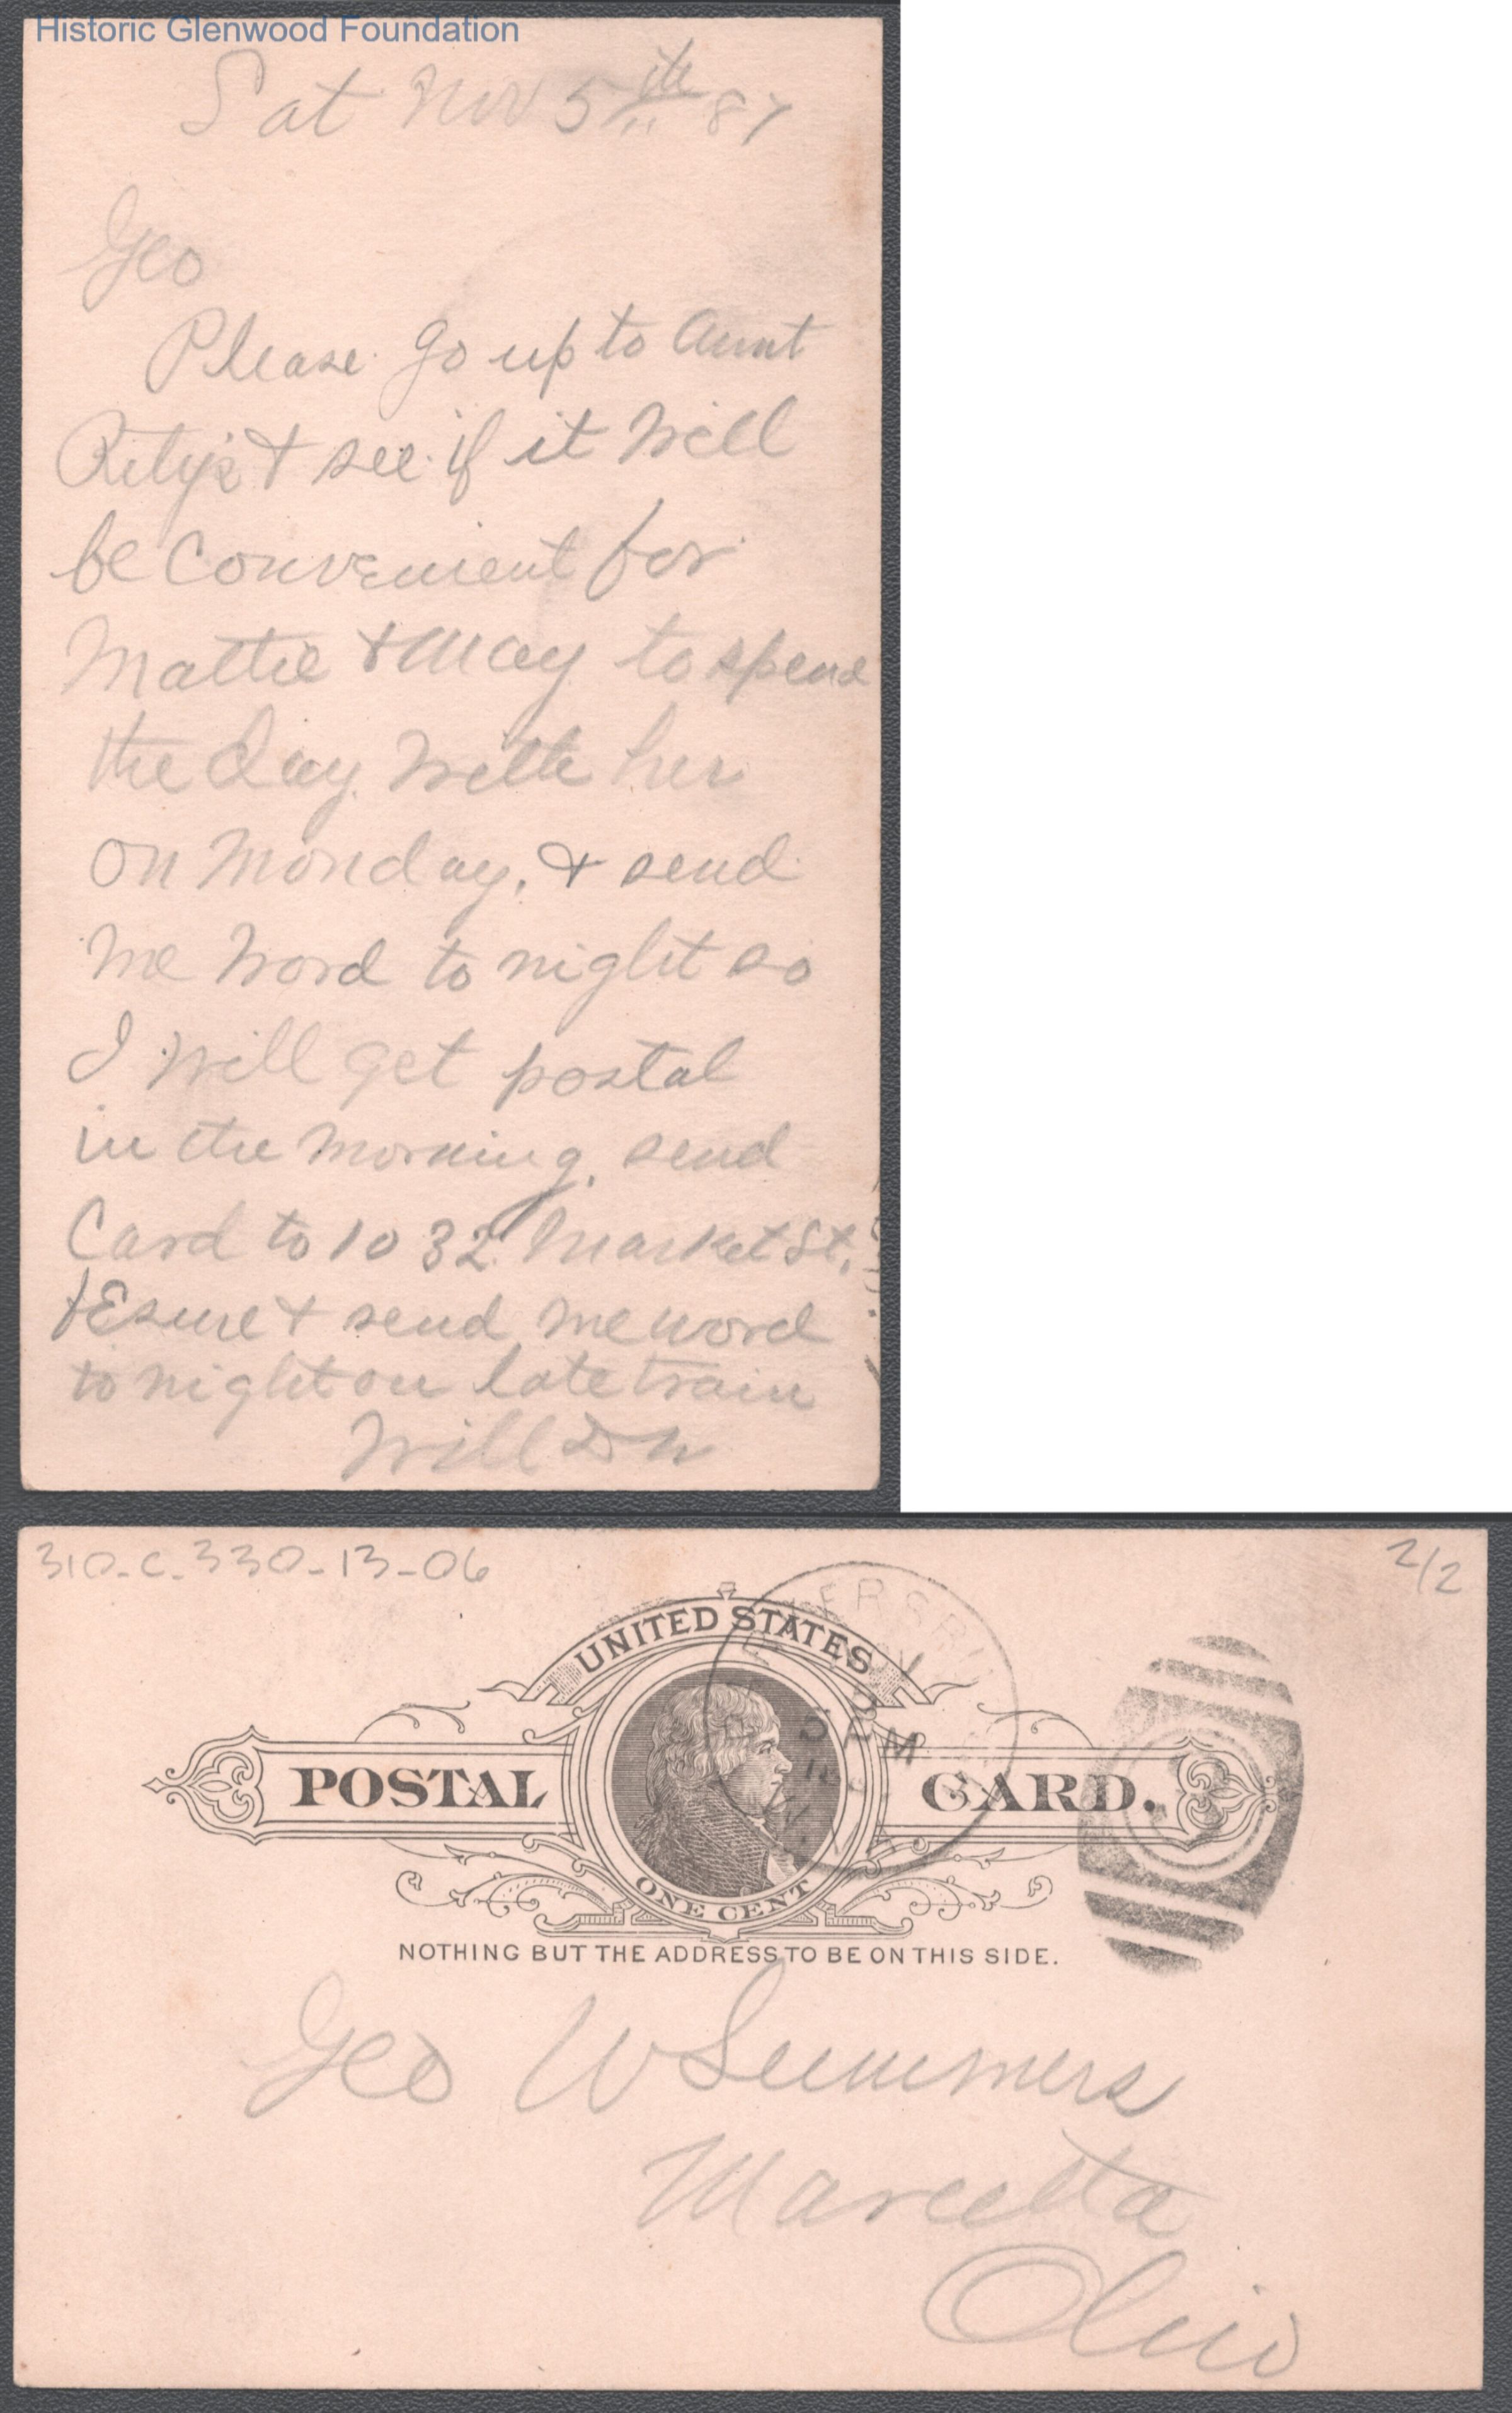 Historic Glenwood Foundation
Sat Nov 5th 87
Geo
Please go up to Aunt
& see if it will
be Convenient for
Mattie & May to spend
the day with her
on Monday, & send
me word to night so
I will get postal
in the morning, send
Card to 1032 Market St.
& send me word
to night on late train
Will
310-C-330-13-06
2/2
UNITED STATES
POSTAL CARD.
ONE CENT
NOTHING BUT THE ADDRESS TO BE ON THIS SIDE.
Geo W Summers
Marietta
Ohio